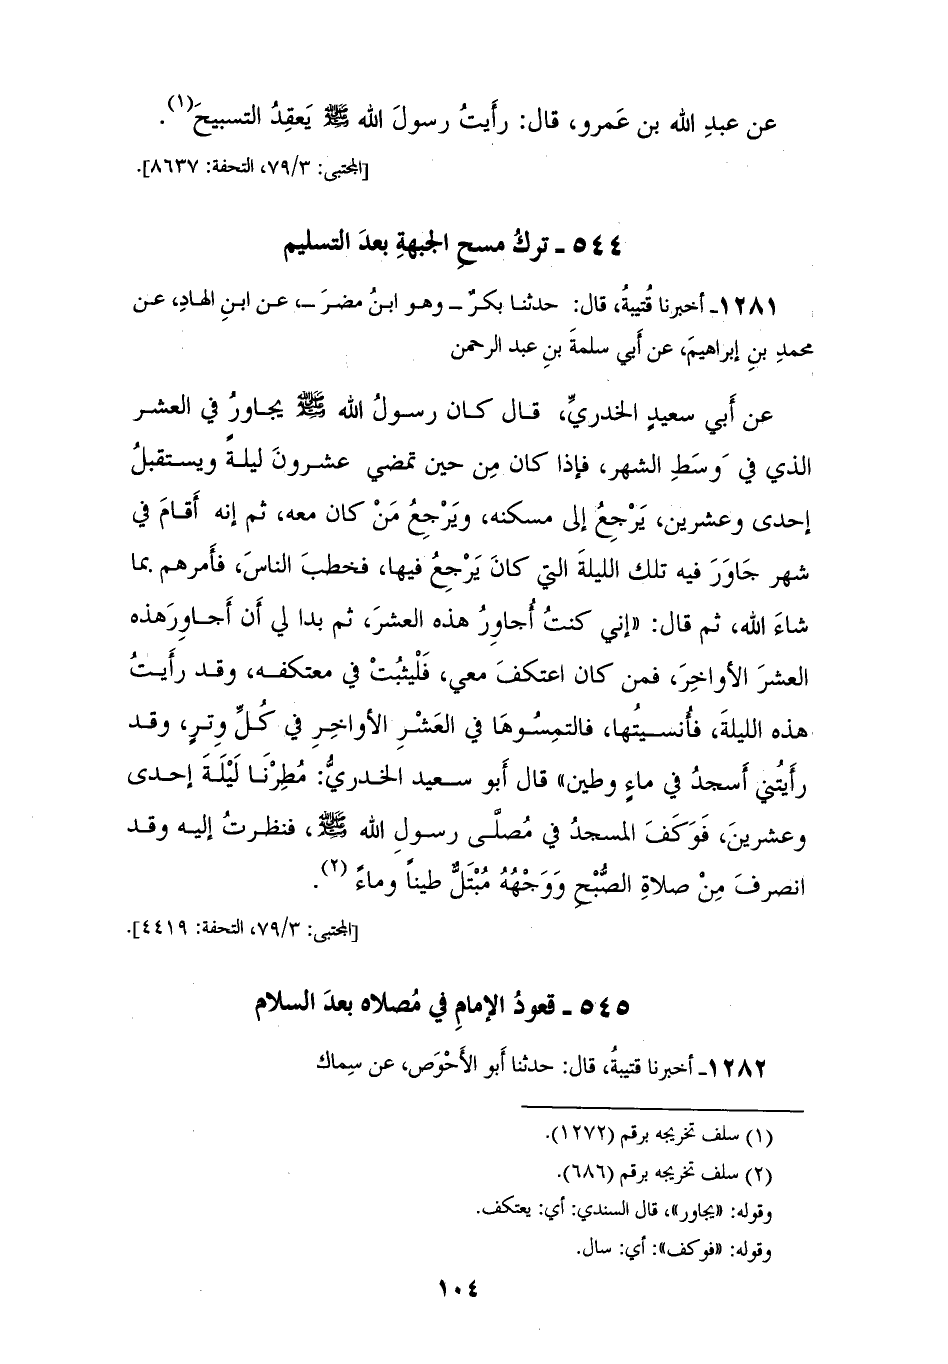 عن عبدِ الله بن عَمرو، قال: رأَيتُ رسولَ الله ﷺ يَعقِدُ التسبيحَ(١).
[المجتبى: ٧٩/٣، التحفة: ٨٦٣٧].
٥٤٤ ـ تركُ مسحِ الجبهةِ بعدَ التسليم
١٢٨١ـ أخبرنا قُتيبةُ، قال: حدثنا بكرٌ ـ وهو ابنُ مضرَ ـ، عن ابنِ الهادِ، عن
محمدِ بنِ إبراهيمَ، عن أَبي سلمةَ بنِ عبد الرحمن
عن أَبي سعيدٍ الخدريِّ، قال كان رسولُ الله ﷺ يجاورُ في العشر
الذي في وَسَطِ الشهر، فإذا كان مِن حين تمضي عشرونَ ليلةً ويستقبلُ
إحدى وعشرين، يَرْجِعُ إلى مسكنه، ويَرْجِعُ مَنْ كان معه، ثم إنه أَقامَ في
شهر جَاوَرَ فيه تلك الليلةَ التي كانَ يَرْجِعُ فيها، فخطبَ الناسَ، فأَمرهم بما
شاءَ الله، ثم قال: «إني كنتُ أُجاورُ هذه العشرَ، ثم بدا لي أَن أَجاورَ هذه
العشرَ الأواخِرَ، فمن كان اعتكفَ معي، فَلْيثبُتْ في معتكفه، وقد رأَيتُ
هذه الليلةَ، فأُنسيتُها، فالتمِسُوهَا في العَشْرِ الأواخِرِ في كُلِّ وترٍ، وقد
رأَيتُني أَسجدُ في ماءٍ وطين» قال أَبو سعيد الخدريُّ: مُطِرْنَا لَيْلَةَ إحدى
وعشرينَ، فَوَكَفَ المسجدُ في مُصلَّى رسولِ الله ﷺ، فنظرتُ إليه وقد
انصرفَ مِنْ صلاةِ الصُّبْحِ وَوَجْهُهُ مُبْتَلٌّ طيناً وماءً(٢).
[المجتبى: ٧٩/٣، التحفة: ٤٤١٩].
٥٤٥ ـ قعودُ الإمامِ في مُصلاه بعدَ السلام
١٢٨٢ـ أخبرنا قتيبةُ، قال: حدثنا أَبو الأَحْوَص، عن سِماك
(١) سلف تخريجه برقم (١٢٧٢).
(٢) سلف تخريجه برقم (٦٨٦).
وقوله: «يجاور»، قال السندي: أي: يعتكف.
وقوله: «فوكف»: أي: سال.
١٠٤